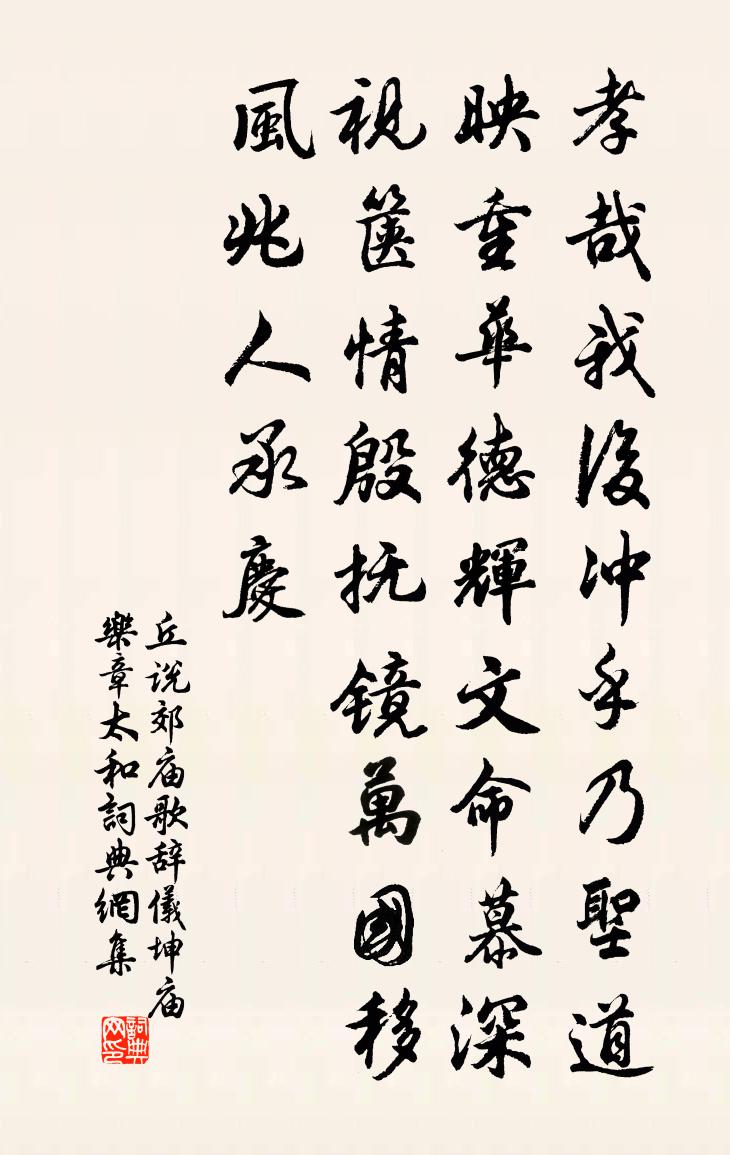 孝哉我後冲乎乃聖道
映重華德輝文命慕深
視篋情殷抚镜萬國移
風兆人承慶
丘说郊庙歌辞儀坤庙
樂章太和詞典網集
詞典
网印